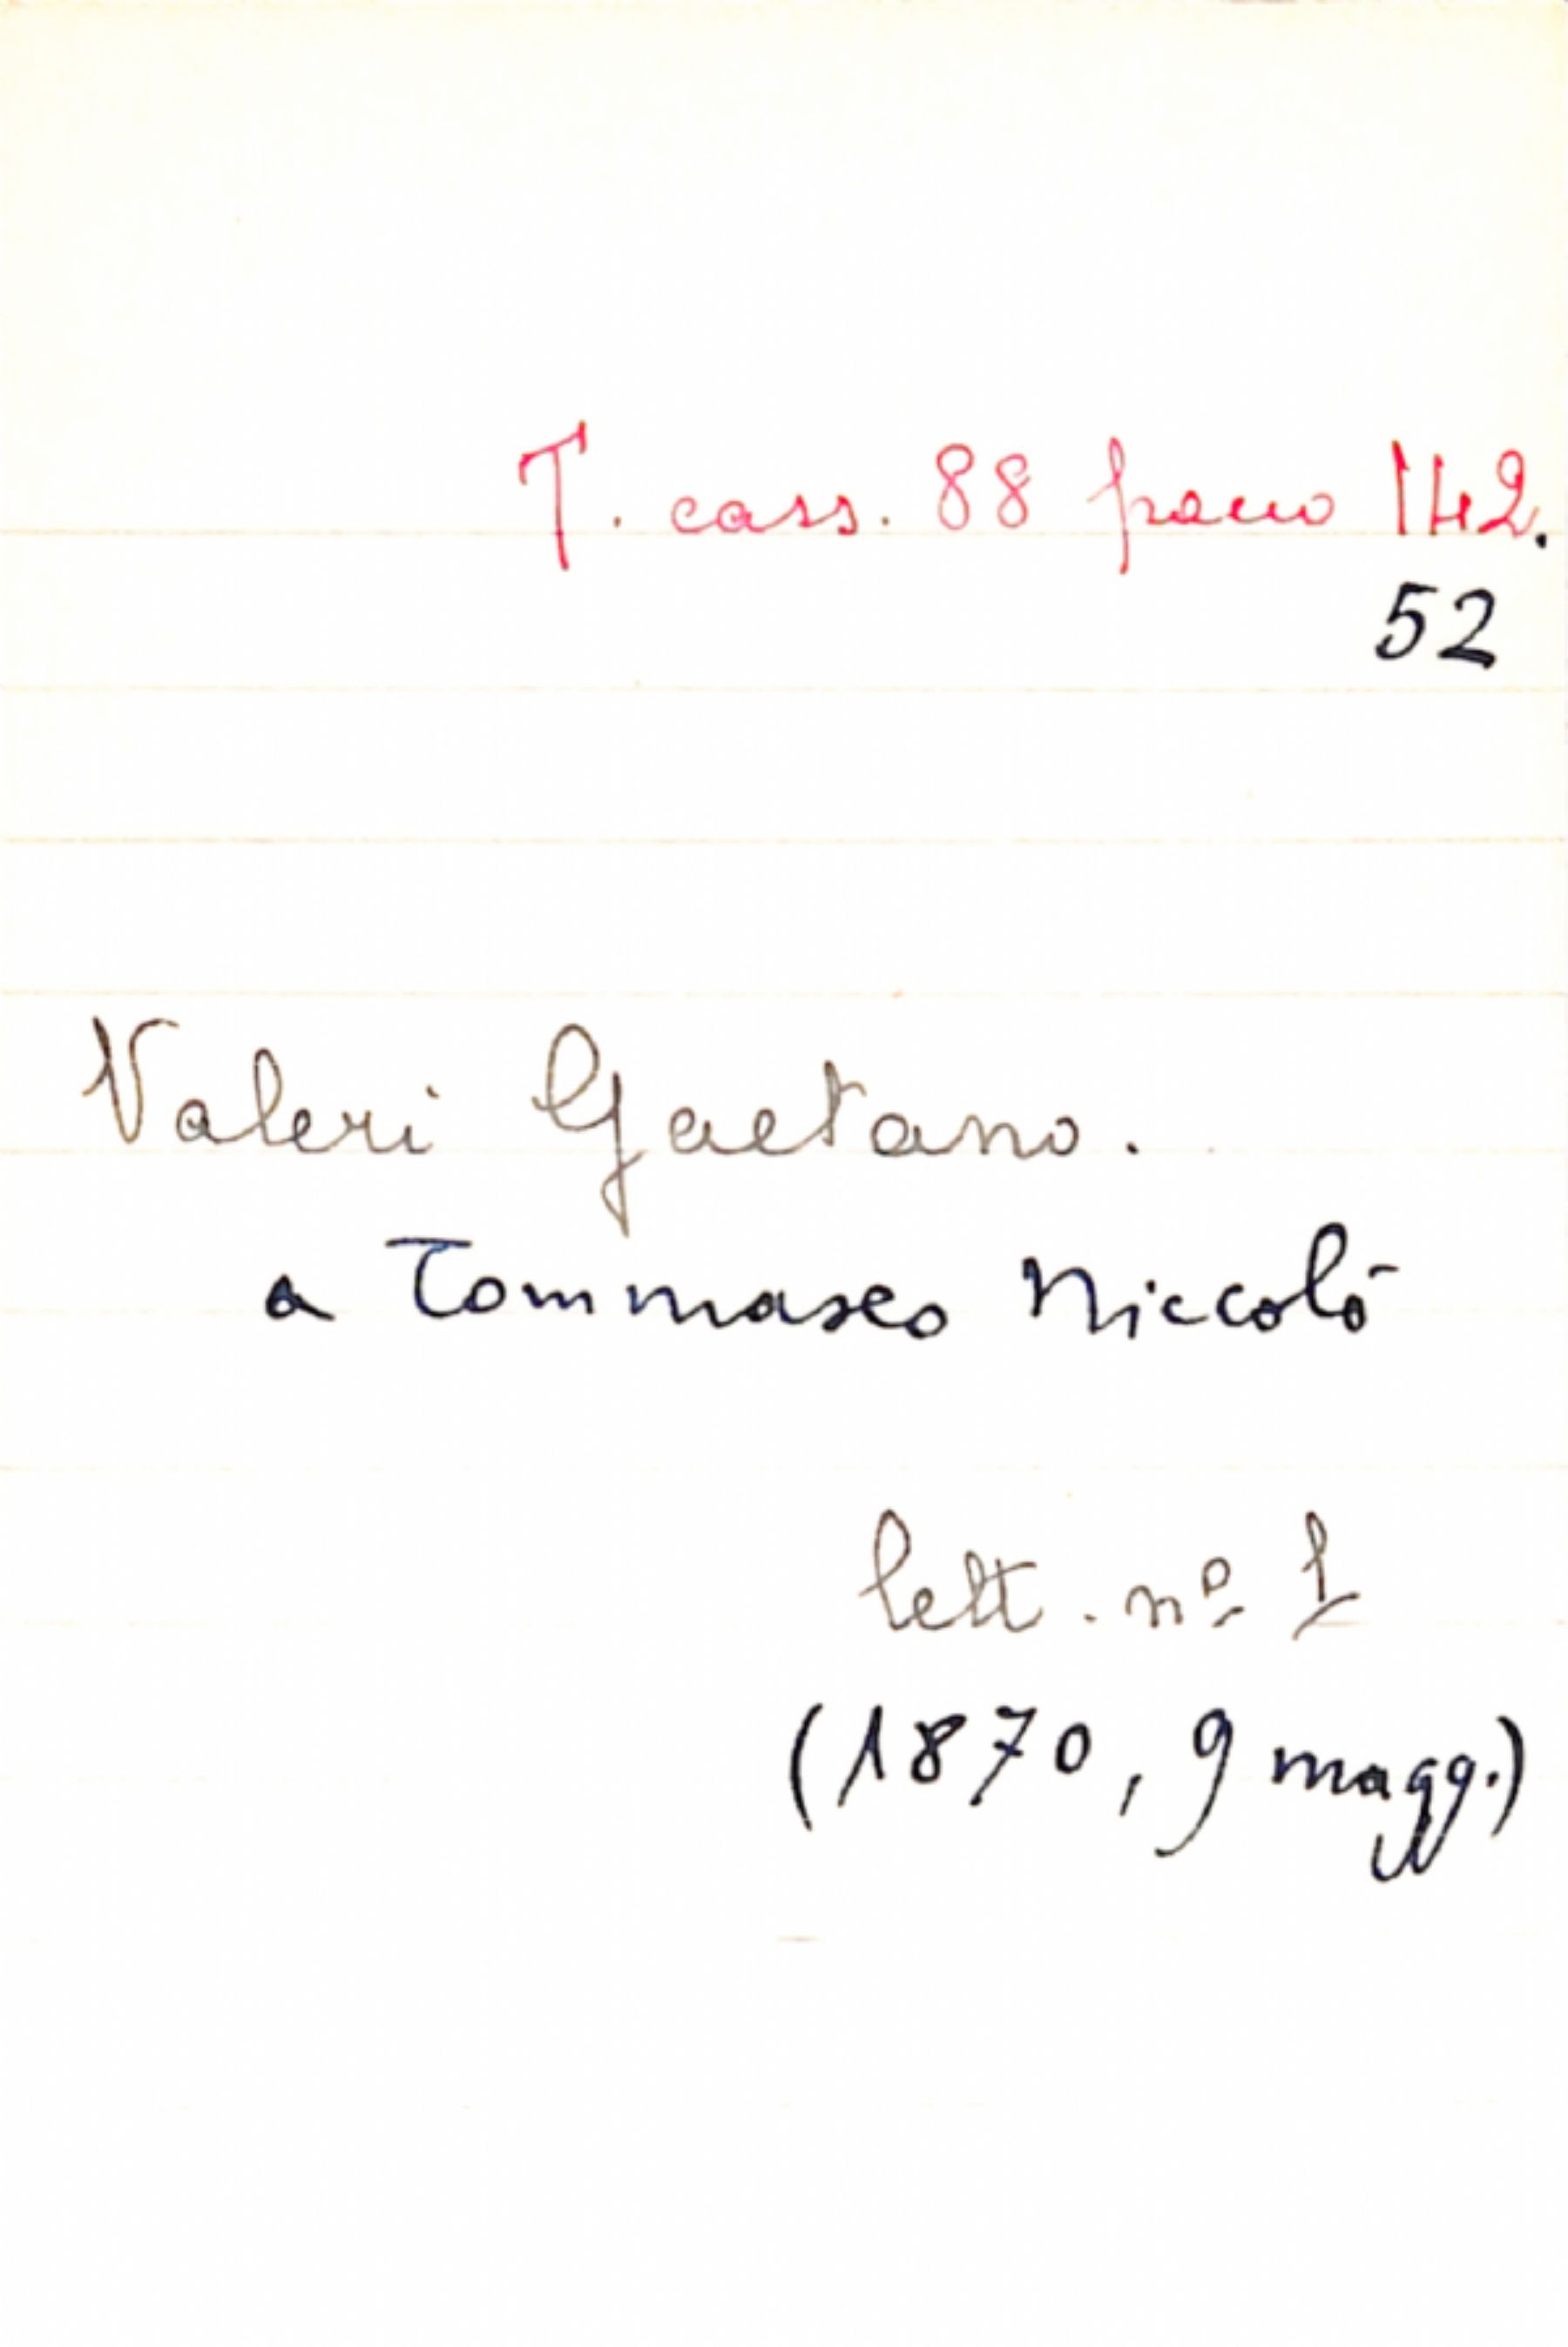 T. cass. 88 pacco 142.
52
Valeri Gaetano.
a Tommaseo Niccolò
lett. nº 1
(1870, 9 magg.)